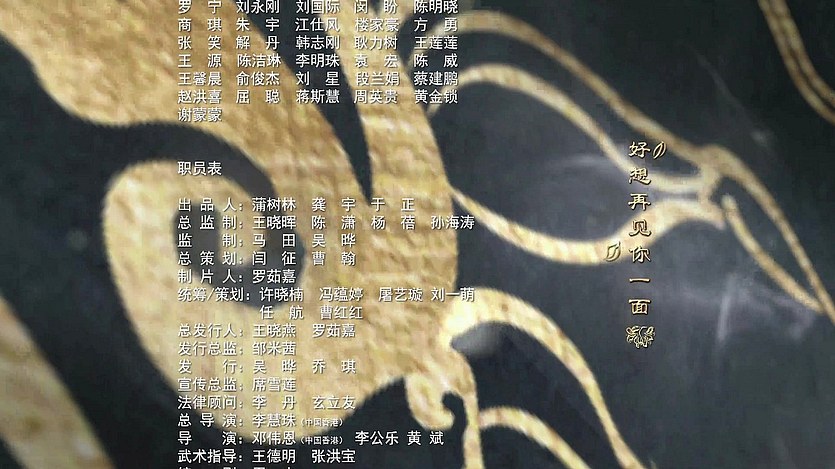 罗　宁　刘永刚　刘国际　闵　盼　陈明晓
商　琪　朱　宇　江仕风　楼家豪　方　勇
张　笑　解　丹　韩志刚　耿力树　王莲莲
王　源　陈洁琳　李明珠　袁　宏　陈　威
王馨晨　俞俊杰　刘　星　段兰娟　蔡建鹏
赵洪喜　屈　聪　蒋斯慧　周英贵　黄金锁
谢蒙蒙
职员表
出 品 人：蒲树林　龚　宇　于　正
总 监 制：王晓晖　陈　潇　杨　蓓　孙海涛
监　　制：马　田　吴　晔
总 策 划：闫　征　曹　翰
制 片 人：罗茹嘉
统筹/策划：许晓楠　冯蕴婷　屠艺璇　刘一萌
任　航　曹红红
总发行人：王晓燕　罗茹嘉
发行总监：邹米茜
发　　行：吴　晔　乔　琪
宣传总监：席雪莲
法律顾问：李　丹　玄立友
总 导 演：李慧珠（中国香港）
导　　演：邓伟恩（中国香港）　李公乐　黄　斌
武术指导：王德明　张洪宝
好想再见你一面